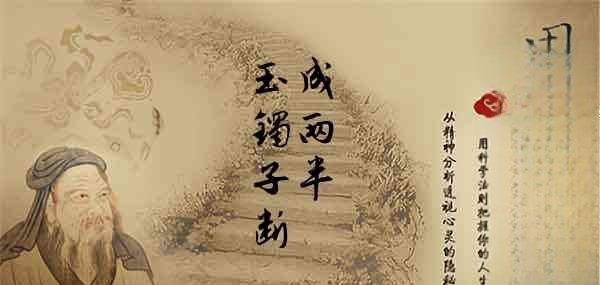 玉镯子断
成两半
用科学法则把握你的人生
从精神分析透视心灵的隐秘